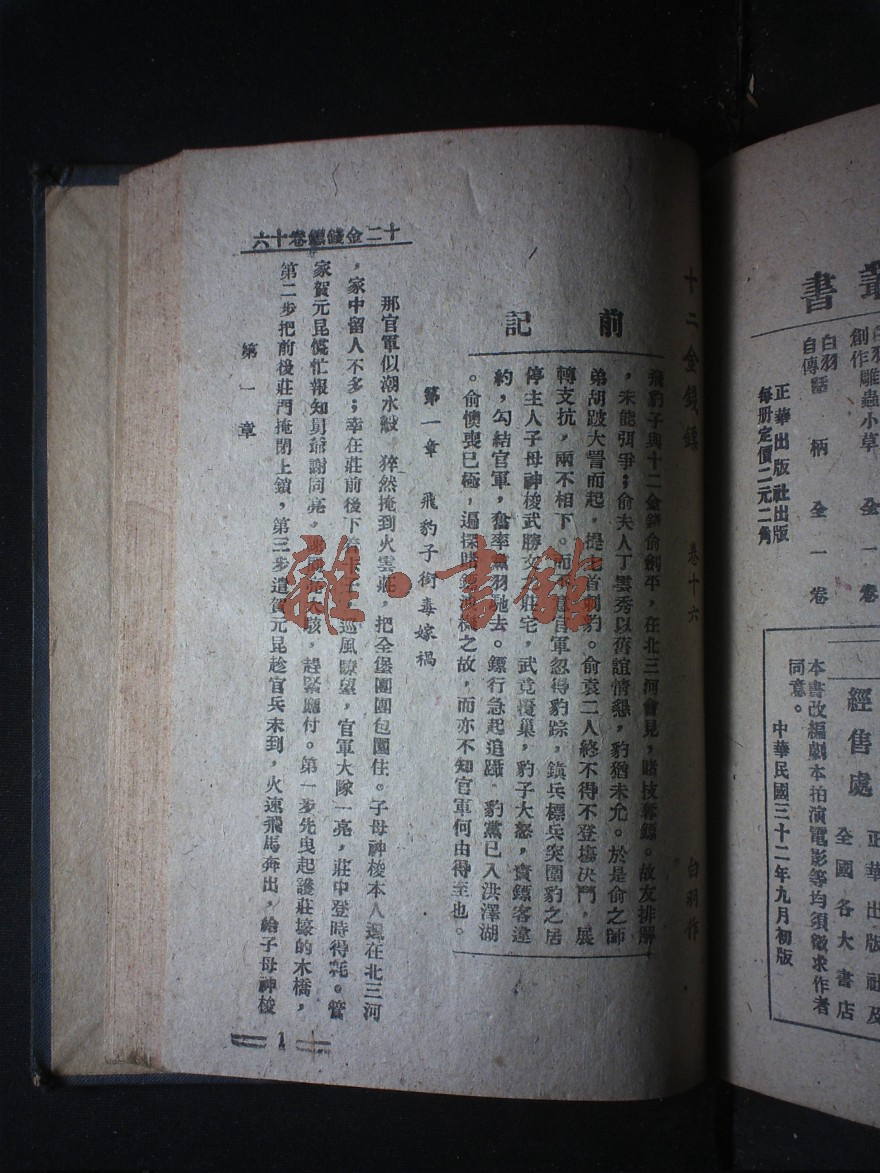 叢書
白羽
創作雕蟲小草 全一卷
白羽
自傳話柄 全一卷
正華出版社出版
每册定價二元二角
經售處
正華出版社及
全國各大書店
本書改編劇本拍演電影等均須徵求作者
同意。 中華民國三十二年九月初版
十二金錢鏢 卷十六 白羽作
前記
飛豹子與十二金錢俞劍平,在北三河會見,賭技奪鏢。故友排解
,未能弭爭;俞夫人丁雲秀以舊誼情懇,豹猶未允。於是俞之師
弟胡跛大詈而起,提 首 豹。俞袁二人終不得不登塲決鬥,展
轉支抗,兩不相下。而不 官軍忽得豹踪,鎮兵標兵突圍豹之居
停主人子母神梭武勝文之莊宅,武竟覆巢,豹子大怒,責鏢客違
約,勾結官軍,奮率黨羽馳去。鏢行急起追躡,豹黨已入洪澤湖
。俞懊喪已極,遍探 之故,而亦不知官軍何由得至也。
第一章 飛豹子銜毒嫁禍
那官軍似潮水般,猝然掩到火雲莊,把全堡團團包圍住。子母神梭本人還在北三河
,家中留人不多;幸在莊前後下着 巡風瞭望,官軍大隊一亮,莊中登時得耗。管
家賀元昆慌忙報知舅爺謝同亮,謝 大駭,趕緊應付。第一步先曳起護莊壕的木橋,
第二步把前後莊門掩閉上鎖,第三步遣賀元昆趁官兵未到,火速飛馬奔出,給子母神梭
十二金錢鏢卷十六
第一章
1
雜·書館